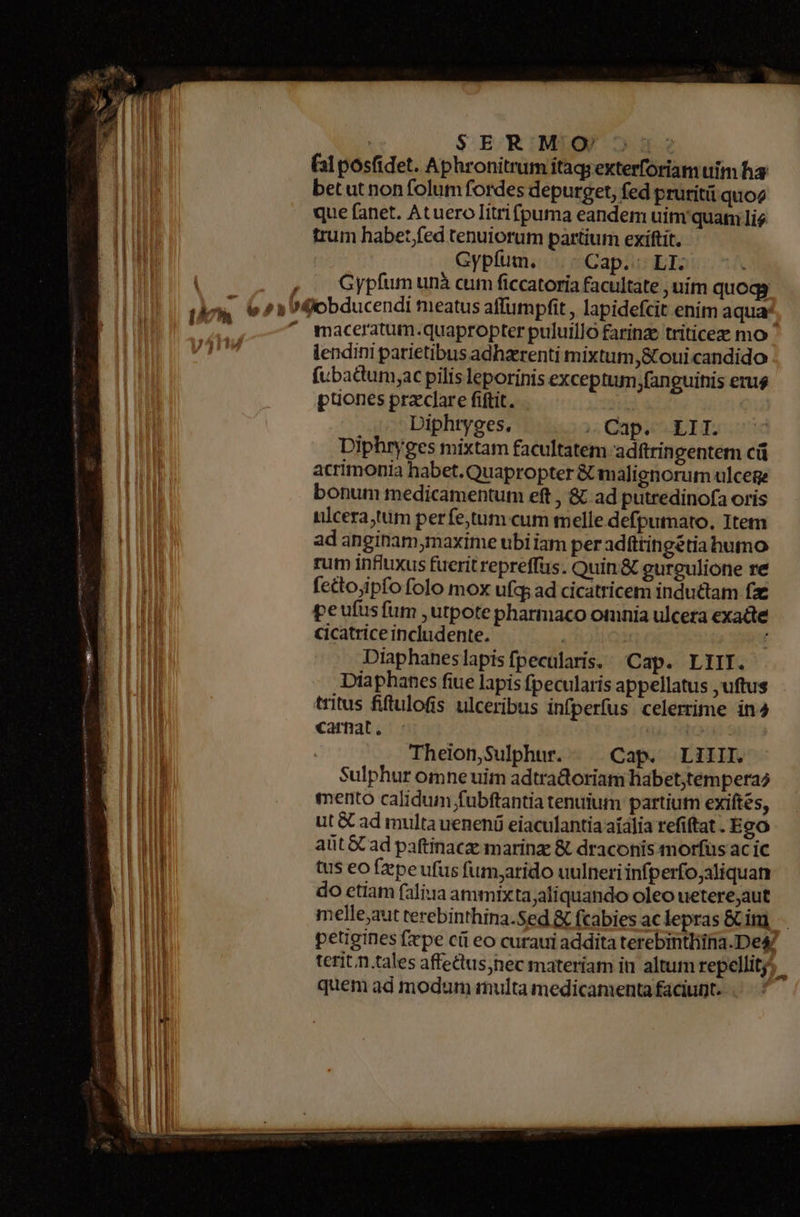 SERMO
ſal posſidet. Aphronitrum itaq; exterſoriam uim ha
bet ut non ſolum ſordes depurget, ſed pruritū quo⸗
que ſanet. At uero litri ſpuma eandem uim quam li⸗
trum habet, ſed tenuiorum partium exiſtit.
Gypſum. Cap. LI.
Gypſum unà cum ſiccatoria facultate, uim quoq;
obducendi meatus aſſumpſit, lapideſcit enim aqua
maceratum. quapropter puluillo farinæ triticeæ mo
lendini parietibus adhærenti mixtum, & oui candido
ſubactum, ac pilis leporinis exceptum, ſanguinis eru⸗
ptiones præclare ſiſtit.
Diphryges. Cap. LII.
Diphryges mixtam facultatem adſtringentem cū
acrimonia habet. Quapropter & malignorum ulcerꝭ
bonum medicamentum eſt, & ad putredinoſa oris
ulcera, tum per ſe, tum cum melle deſpumato. Item
ad anginam, maxime ubi iam per adſtringētia humo
rum influxus fuerit repreſſus. Quin & gurgulione re
ſecto, ipſo ſolo mox uſq; ad cicatricem inductam ſæ
pe uſus ſum, utpote pharmaco omnia ulcera exacte
cicatrice includente.
Diaphanes lapis ſpecularis. Cap. LIII.
Diaphanes ſiue lapis ſpecularis appellatus, uſtus
tritus fiſtuloſis ulceribus inſperſus celerrime in⸗
carnat.
Theion, Sulphur. Cap. LIIII.
Sulphur omne uim adtractoriam habet, tempera⸗
mento calidum, ſubſtantia tenuium partium exiſtēs,
ut & ad multa uenenū eiaculantia aīalia reſiſtat. Ego
aūt & ad paſtinacæ marinæ & draconis morſus ac ic
tus eo ſæpe uſus ſum, arido uulneri inſperſo, aliquan
do etiam ſaliua ammixta, aliquando oleo uetere, aut
melle, aut terebinthina. Sed & ſcabies ac lepras & im
petigines ſæpe cū eo curaui addita terebinthina. De⸗
terit n. tales affectus, nec materiam in altum repellit,
quem ad modum multa medicamenta faciunt.